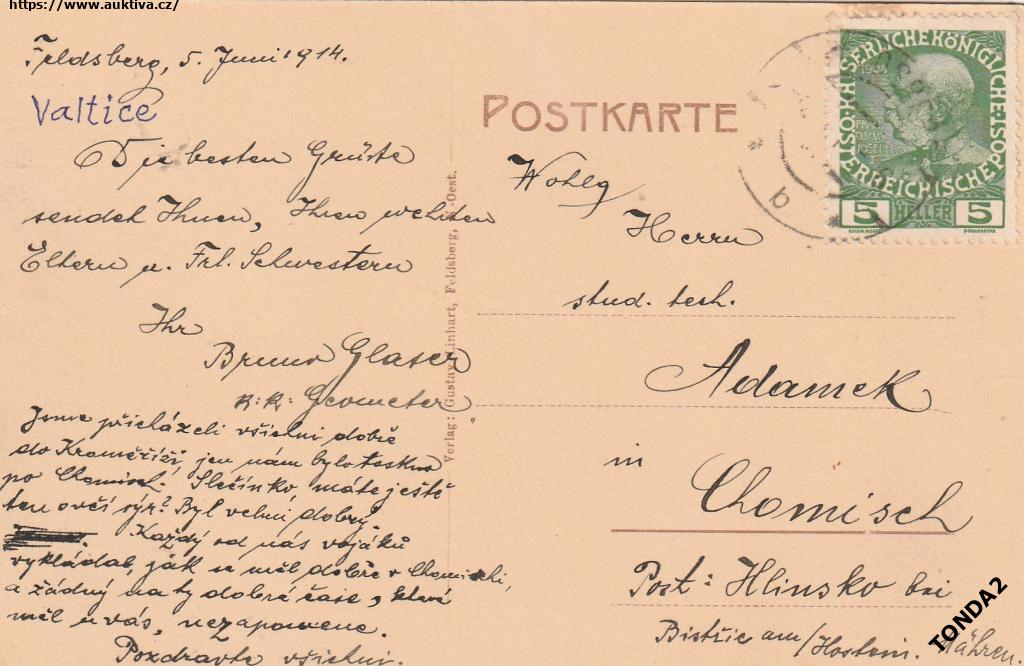 https://www.auktiva.cz/
Feldsberg, 5. Juni 1914.
Valtice
Die besten Grüße
sendet Ihnen, Ihren werten
Eltern u. Frl. Schwestern
Ihr
Bruno Glaser
k: k: Geometer
Jsme přicházeli všichni dobře
do Kroměříži, jen nám bylo teskno
po Chomisch. Slečinko, máte ještě
ten ovčí sýr? Byl velmi dobrý.
Každý od nás vojáků
vykládab, jak se měl dobře v Chomischi,
a žádný na ty dobré čase, které
měl u vás, nezapomene.
Pozdravte všichni.
Verlag: Gustav Linhart, Feldsberg, -Oest.
POSTKARTE
KAISERLICHE KÖNIGLICHE
ÖSTERREICHISCHE POST
5 HELLER 5
Wohlg
Herrn
stud. tech.
Adamek
in
Chomisch
Post: Hlinsko bei
Bistřic am/Hostein. Mähren.
TONDA2